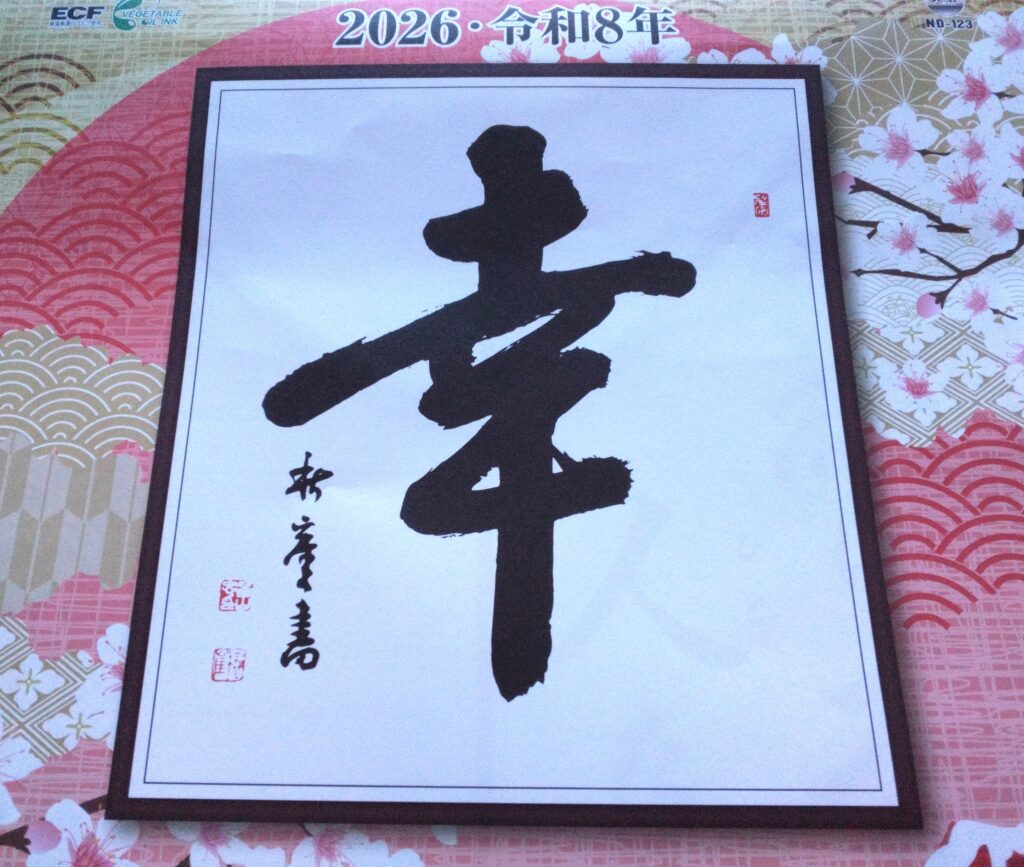 ECF
VEGETABLE
OIL INK
2026・令和8年
ND-123
幸
書